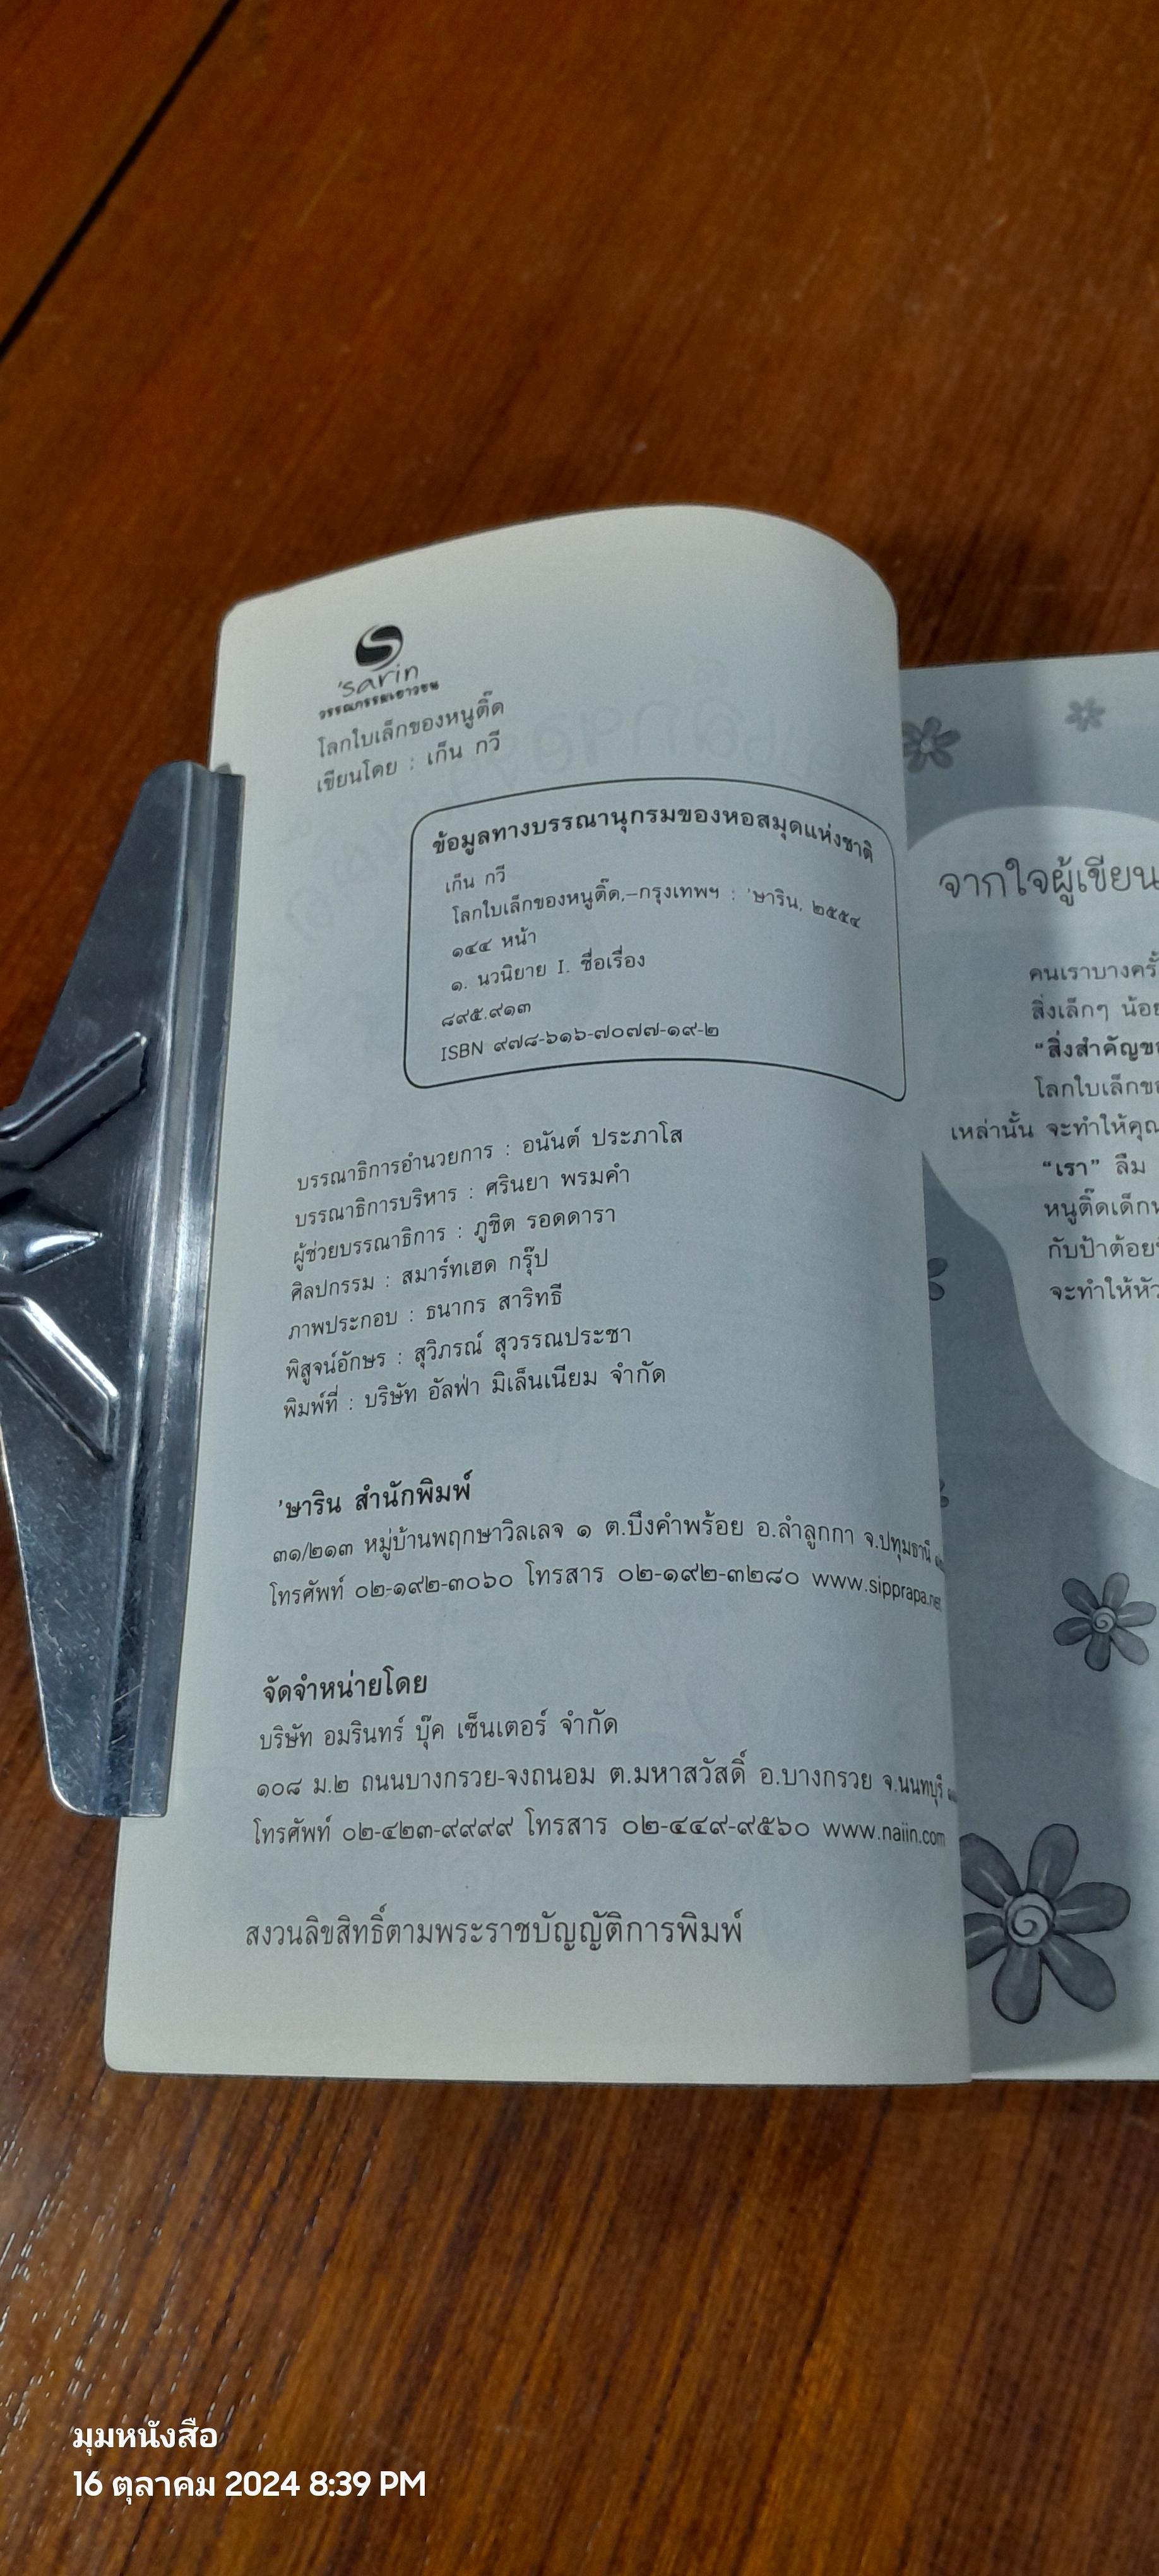 'sarin
วรรณกรรมเยาวชน
โลกใบเล็กของหนูติ๊ด
เขียนโดย : เก็น กวี
ข้อมูลทางบรรณานุกรมของหอสมุดแห่งชาติ
เก็น กวี
โลกใบเล็กของหนูติ๊ด,–กรุงเทพฯ : 'ษาริน, ๒๕๕๔
๑๔๔ หน้า
๑. นวนิยาย I. ชื่อเรื่อง
๘๙๕.๙๑๓
ISBN ๙๗๘-๖๑๖-๗๐๗๗-๑๙-๒
บรรณาธิการอำนวยการ : อนันต์ ประภาโส
บรรณาธิการบริหาร : ศรินยา พรมคำ
ผู้ช่วยบรรณาธิการ : ภูชิต รอดดารา
ศิลปกรรม : สมาร์ทเฮด กรุ๊ป
ภาพประกอบ : ธนากร สาริทธี
พิสูจน์อักษร : สุวิภรณ์ สุวรรณประชา
พิมพ์ที่ : บริษัท อัลฟ่า มิเล็นเนียม จำกัด
'ษาริน สำนักพิมพ์
๓๑/๒๑๓ หมู่บ้านพฤกษาวิลเลจ ๑ ต.บึงคำพร้อย อ.ลำลูกกา จ.ปทุมธานี
โทรศัพท์ ๐๒-๑๙๒-๓๐๖๐ โทรสาร ๐๒-๑๙๒-๓๒๘๐ www.sipprapa.net
จัดจำหน่ายโดย
บริษัท อมรินทร์ บุ๊ค เซ็นเตอร์ จำกัด
๑๐๘ ม.๒ ถนนบางกรวย-จงถนอม ต.มหาสวัสดิ์ อ.บางกรวย จ.นนทบุรี
โทรศัพท์ ๐๒-๔๒๓-๙๙๙๙ โทรสาร ๐๒-๔๔๙-๙๕๖๐ www.naiin.com
สงวนลิขสิทธิ์ตามพระราชบัญญัติการพิมพ์
จากใจผู้เขียน
คนเราบางครั้
สิ่งเล็กๆ น้อย
"สิ่งสำคัญขอ
โลกใบเล็กขอ
เหล่านั้น จะทำให้คุณ
"เรา" ลืม
หนูติ๊ดเด็กห
กับป้าต้อย
จะทำให้หัว
มุมหนังสือ
16 ตุลาคม 2024 8:39 PM